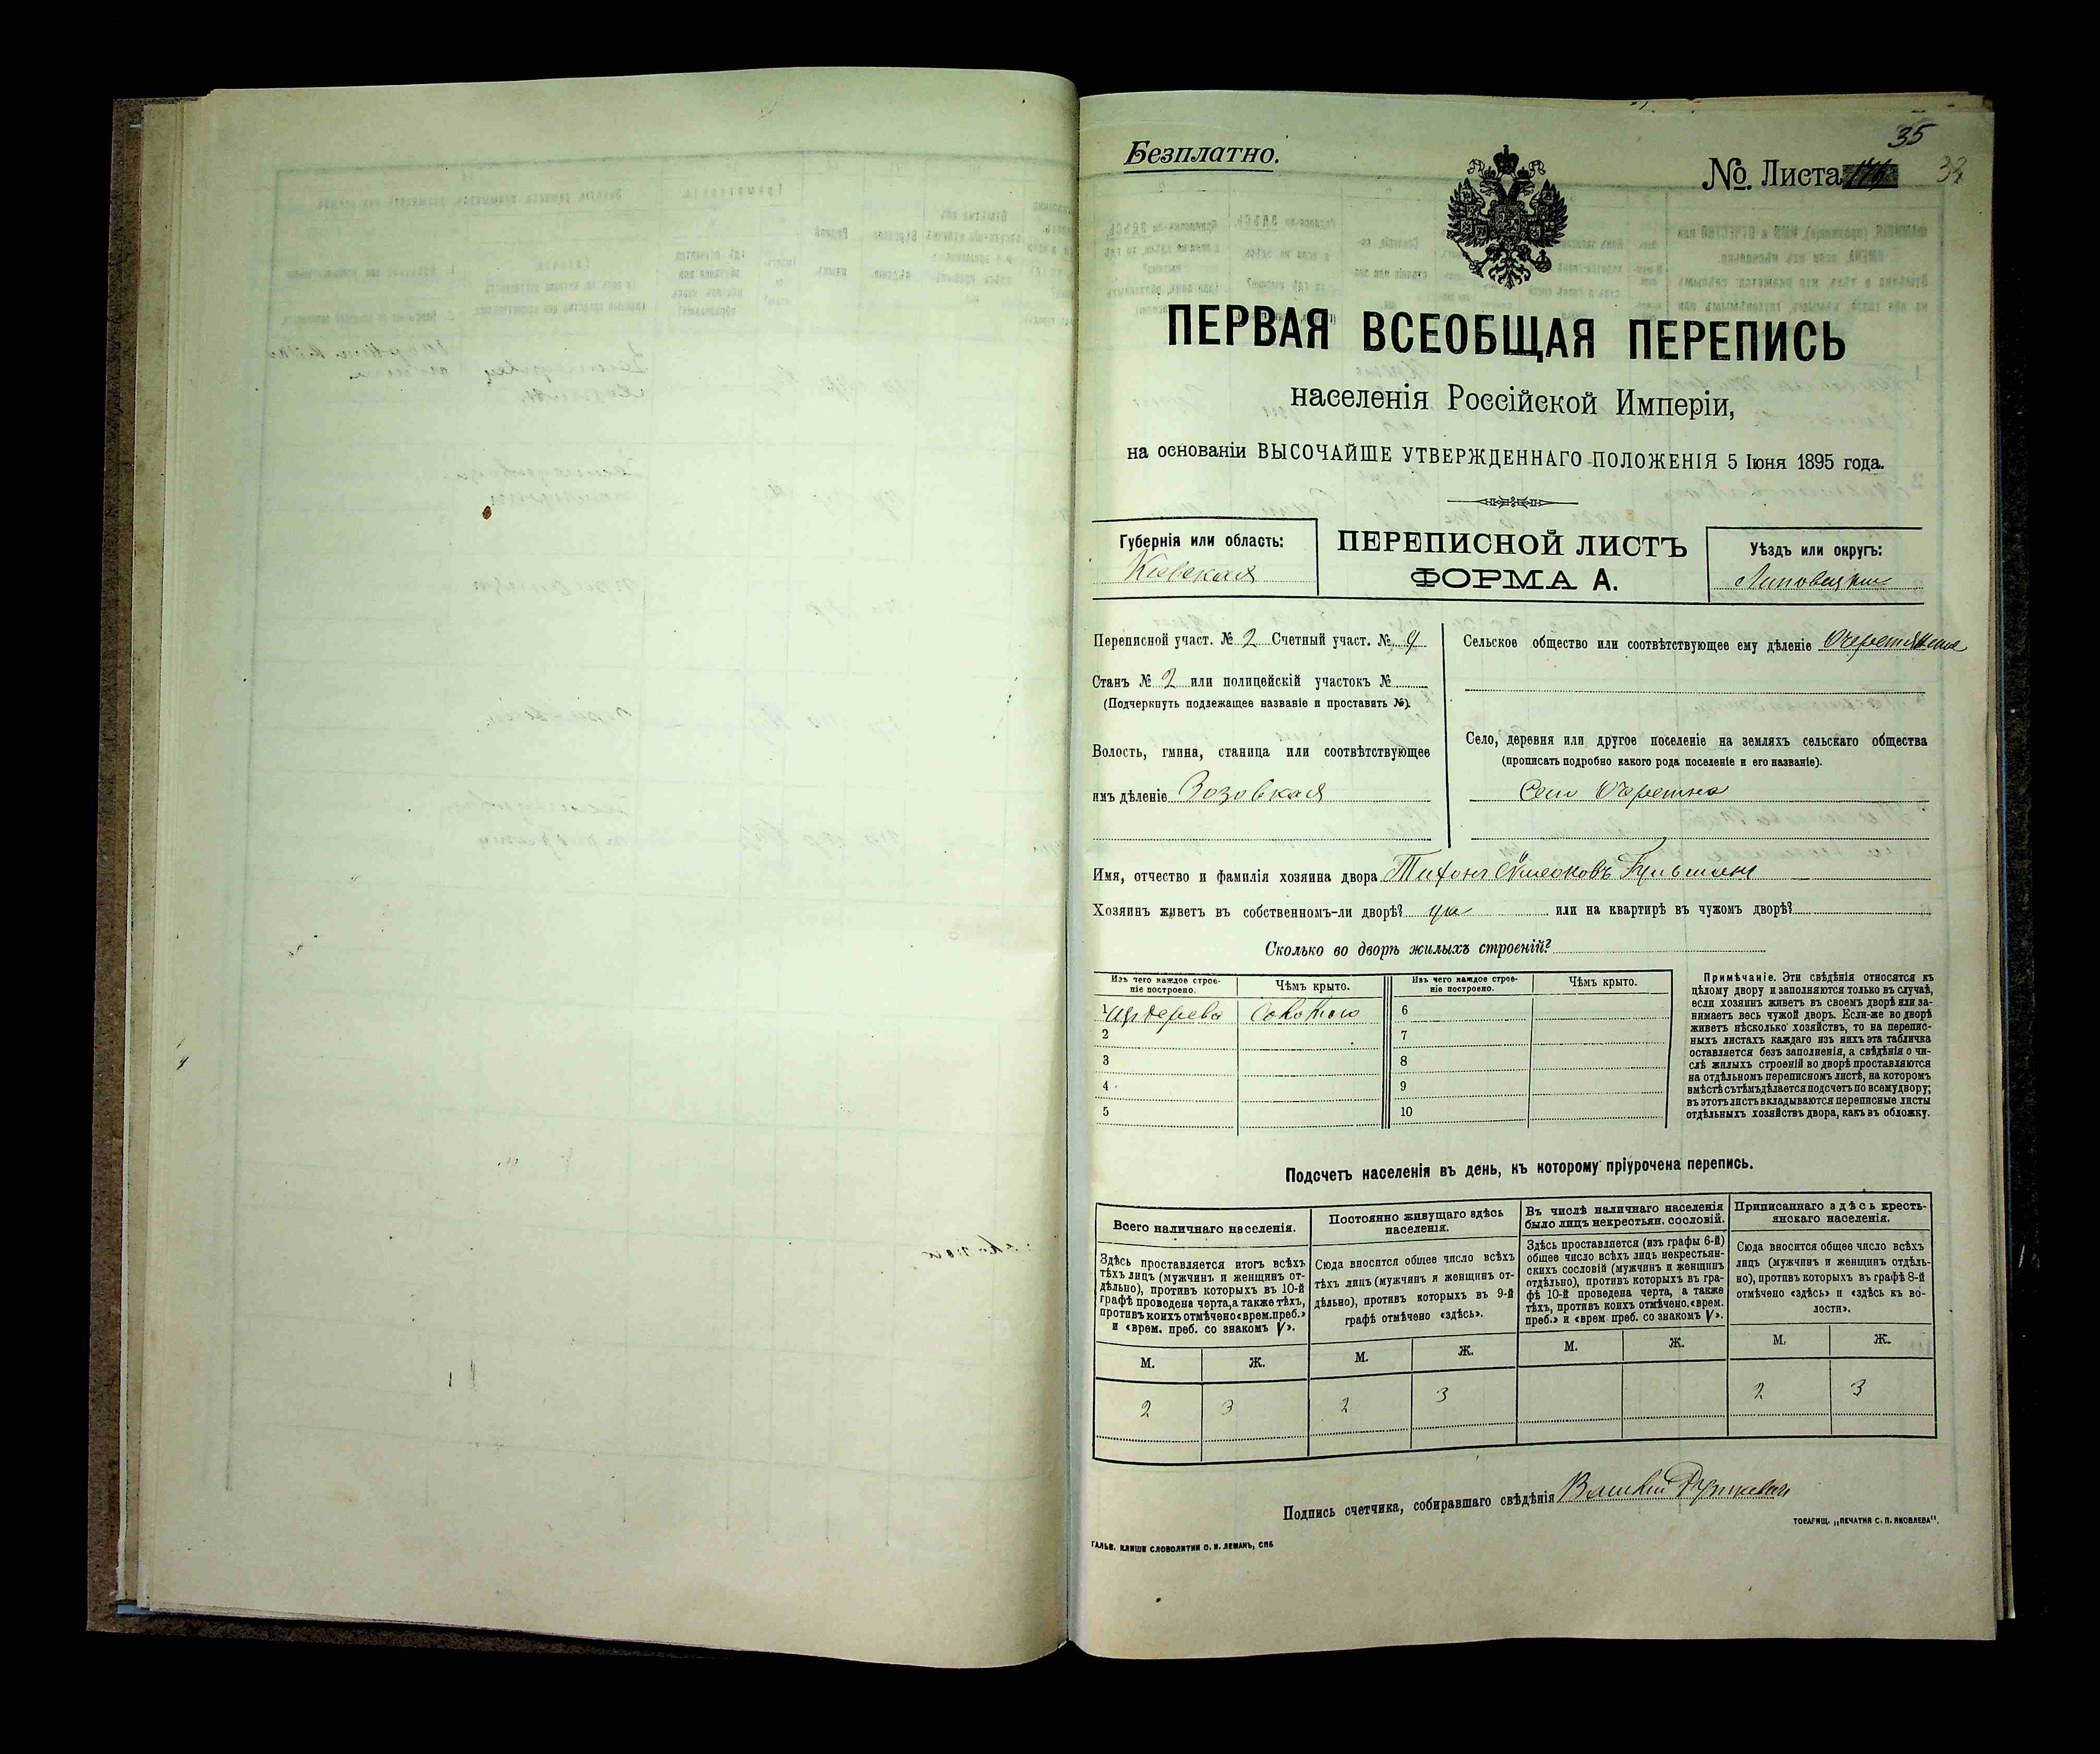 35
Безплатно.
№. Листа
ПЕРВАЯ ВСЕОБЩАЯ ПЕРЕПИСЬ
населенія Россійской Имперіи,
на основаніи ВЫСОЧАЙШЕ УТВЕРЖДЕННАГО ПОЛОЖЕНІЯ 5 Іюня 1895 года.
Губернія или область:
Кіевская
ПЕРЕПИСНОЙ ЛИСТЪ
ФОРМА А.
Уѣздъ или округъ:
Липовецкій
Переписной участ. № 2 Счетный участ. №
Станъ № 2 или полицейскій участокъ №
(Подчеркнуть подлежащее названіе и проставить №).
Волость, гмина, станица или соотвѣтствующее
имъ дѣленіе Зозовская
Сельское общество или соотвѣтствующее ему дѣленіе
Село, деревня или другое поселеніе на земляхъ сельскаго общества
(прописать подробно какого рода поселеніе и его названіе).
Село Очеретно
Имя, отчество и фамилія хозяина двора Тихонъ
Хозяинъ живетъ въ собственномъ-ли дворѣ? да или на квартирѣ въ чужомъ дворѣ?
Сколько во дворѣ жилыхъ строеній?
Изъ чего каждое строе-
ніе построено.
Чѣмъ крыто.
Изъ чего каждое строе-
ніе построено.
Чѣмъ крыто.
1 Издерева Соломою 6
2 7
3 8
4 9
5 10
Примѣчаніе. Эти свѣдѣнія относятся къ
цѣлому двору и заполняются только въ случаѣ,
если хозяинъ живетъ въ своемъ дворѣ или за-
нимаетъ весь чужой дворъ. Если-же во дворѣ
живетъ нѣсколько хозяйствъ, то на перепис-
ныхъ листахъ каждаго изъ нихъ эта табличка
оставляется безъ заполненія, а свѣдѣнія о чи-
слѣ жилыхъ строеній во дворѣ проставляются
на отдѣльномъ переписномъ листѣ, на которомъ
вмѣстѣ съ тѣмъ дѣлается подсчетъ по всему двору;
въ этотъ листъ вкладываются переписные листы
отдѣльныхъ хозяйствъ двора, какъ въ обложку.
Подсчетъ населенія въ день, къ которому пріурочена перепись.
Всего наличнаго населенія.
Здѣсь проставляется итогъ всѣхъ
тѣхъ лицъ (мужчинъ и женщинъ от-
дѣльно), противъ которыхъ въ 10-й
графѣ проведена черта, а также тѣхъ,
противъ коихъ отмѣчено «врем. преб.»
и «врем. преб. со знакомъ V».
М. Ж.
2 3
Постоянно живущаго здѣсь
населенія.
Сюда вносится общее число всѣхъ
тѣхъ лицъ (мужчинъ и женщинъ от-
дѣльно), противъ которыхъ въ 9-й
графѣ отмѣчено «здѣсь».
М. Ж.
2 3
Въ числѣ наличнаго населенія
было лицъ некрестьян. сословій.
Здѣсь проставляется (изъ графы 6-й)
общее число всѣхъ лицъ некрестьян-
скихъ сословій (мужчинъ и женщинъ
отдѣльно), противъ которыхъ въ гра-
фѣ 10-й проведена черта, а также
тѣхъ, противъ коихъ отмѣчено «врем.
преб.» и «врем преб. со знакомъ V».
М. Ж.
Приписаннаго здѣсь кресть-
янскаго населенія.
Сюда вносится общее число всѣхъ
лицъ (мужчинъ и женщинъ отдѣль-
но), противъ которыхъ въ графѣ 8-й
отмѣчено «здѣсь» и «здѣсь къ во-
лости».
М. Ж.
2 3
Подпись счетчика, собиравшаго свѣдѣнія
ТОВАРИЩ. „ПЕЧАТНЯ С. П. ЯКОВЛЕВА".
ГАЛЬВ. КЛИШЕ СЛОВОЛИТНИ О. И. ЛЕМАНЪ, СПБ